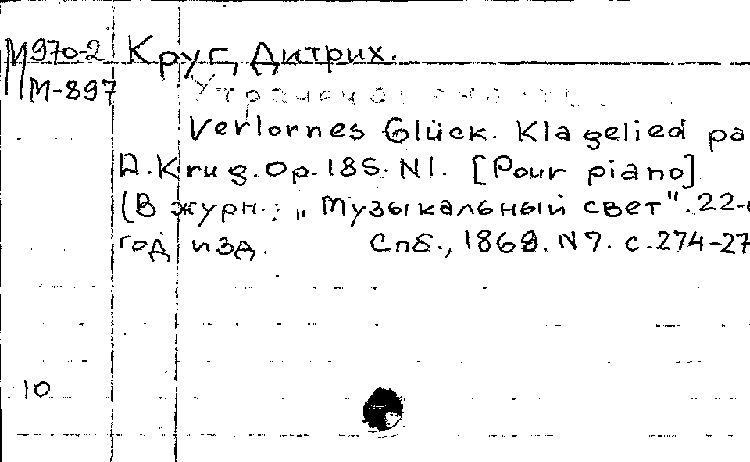 М970-2 Круг, Дитрих.
М-897
Verlornes Glück. Klagelied pa
D. Krug. Op. 185. N1. [Pour piano]
(В журн.: „Музыкальный свет". 22-
год изд. Спб., 1868. N7. с. 274-27
10